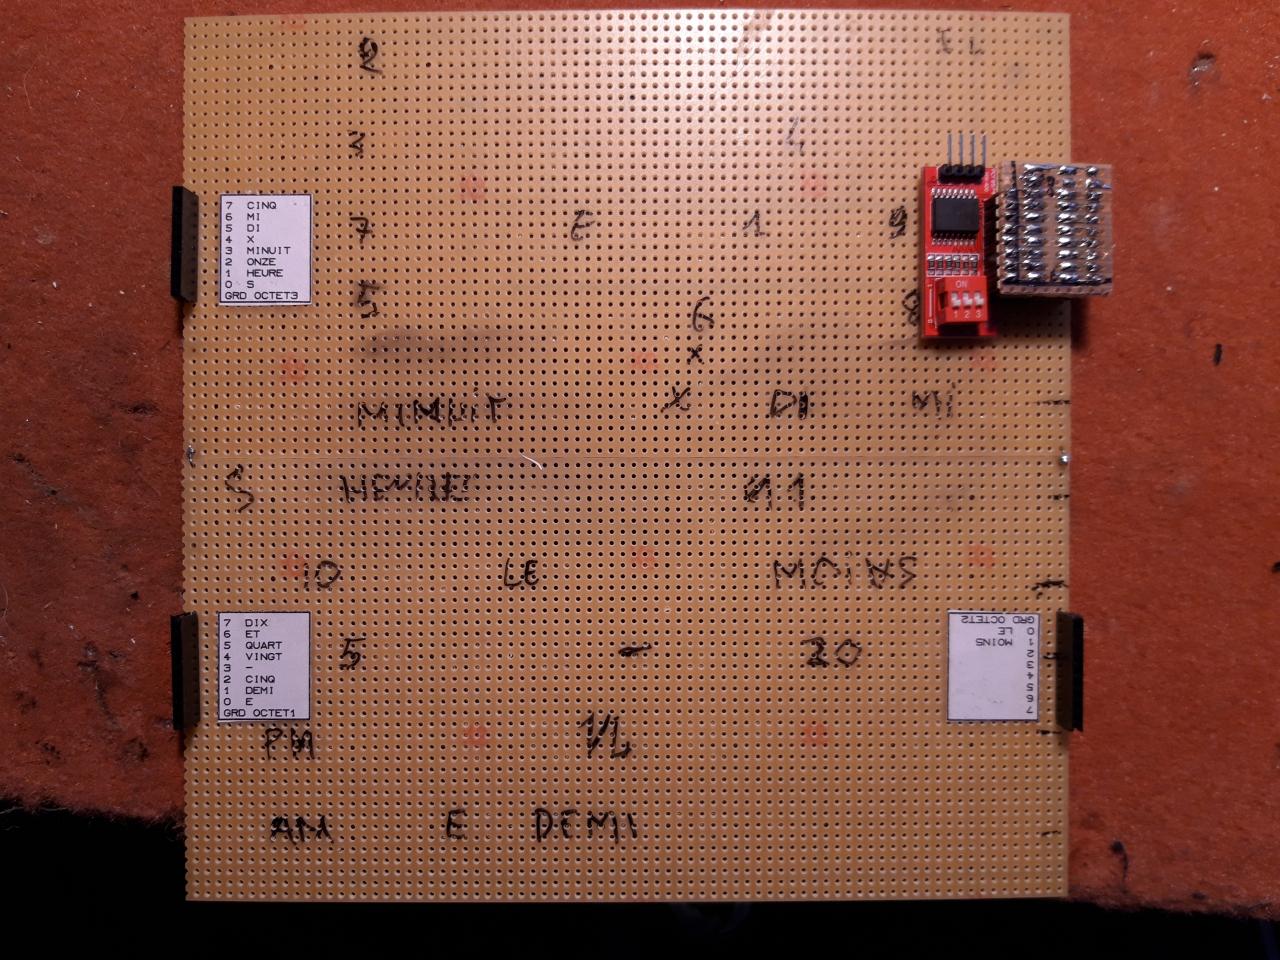 2
IL
3
4
7 CINQ
6 MI
5 DI
4 X
3 MINUIT
2 ONZE
1 HEURE
0 S
GRD OCTET3
7
E
1
9
5
6
8
ON
1 2 3
X
MINUIT
X
DI
MI
S
HEURE
11
10
LE
MOINS
7 DIX
6 ET
5 QUART
4 VINGT
3 -
2 CINQ
1 DEMI
0 E
GRD OCTET1
5
-
20
GRD OCTET2
0 LE
1 MOINS
2
3
4
5
6
7
PM
1/4
AM
E
DEMI